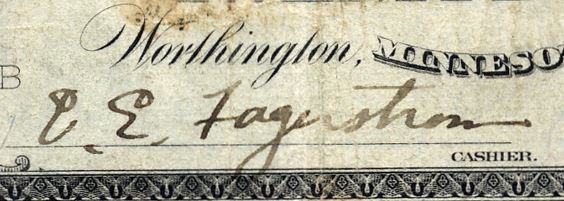 Worthington, MINNESO
B
C. E. Fagerstrom
CASHIER.